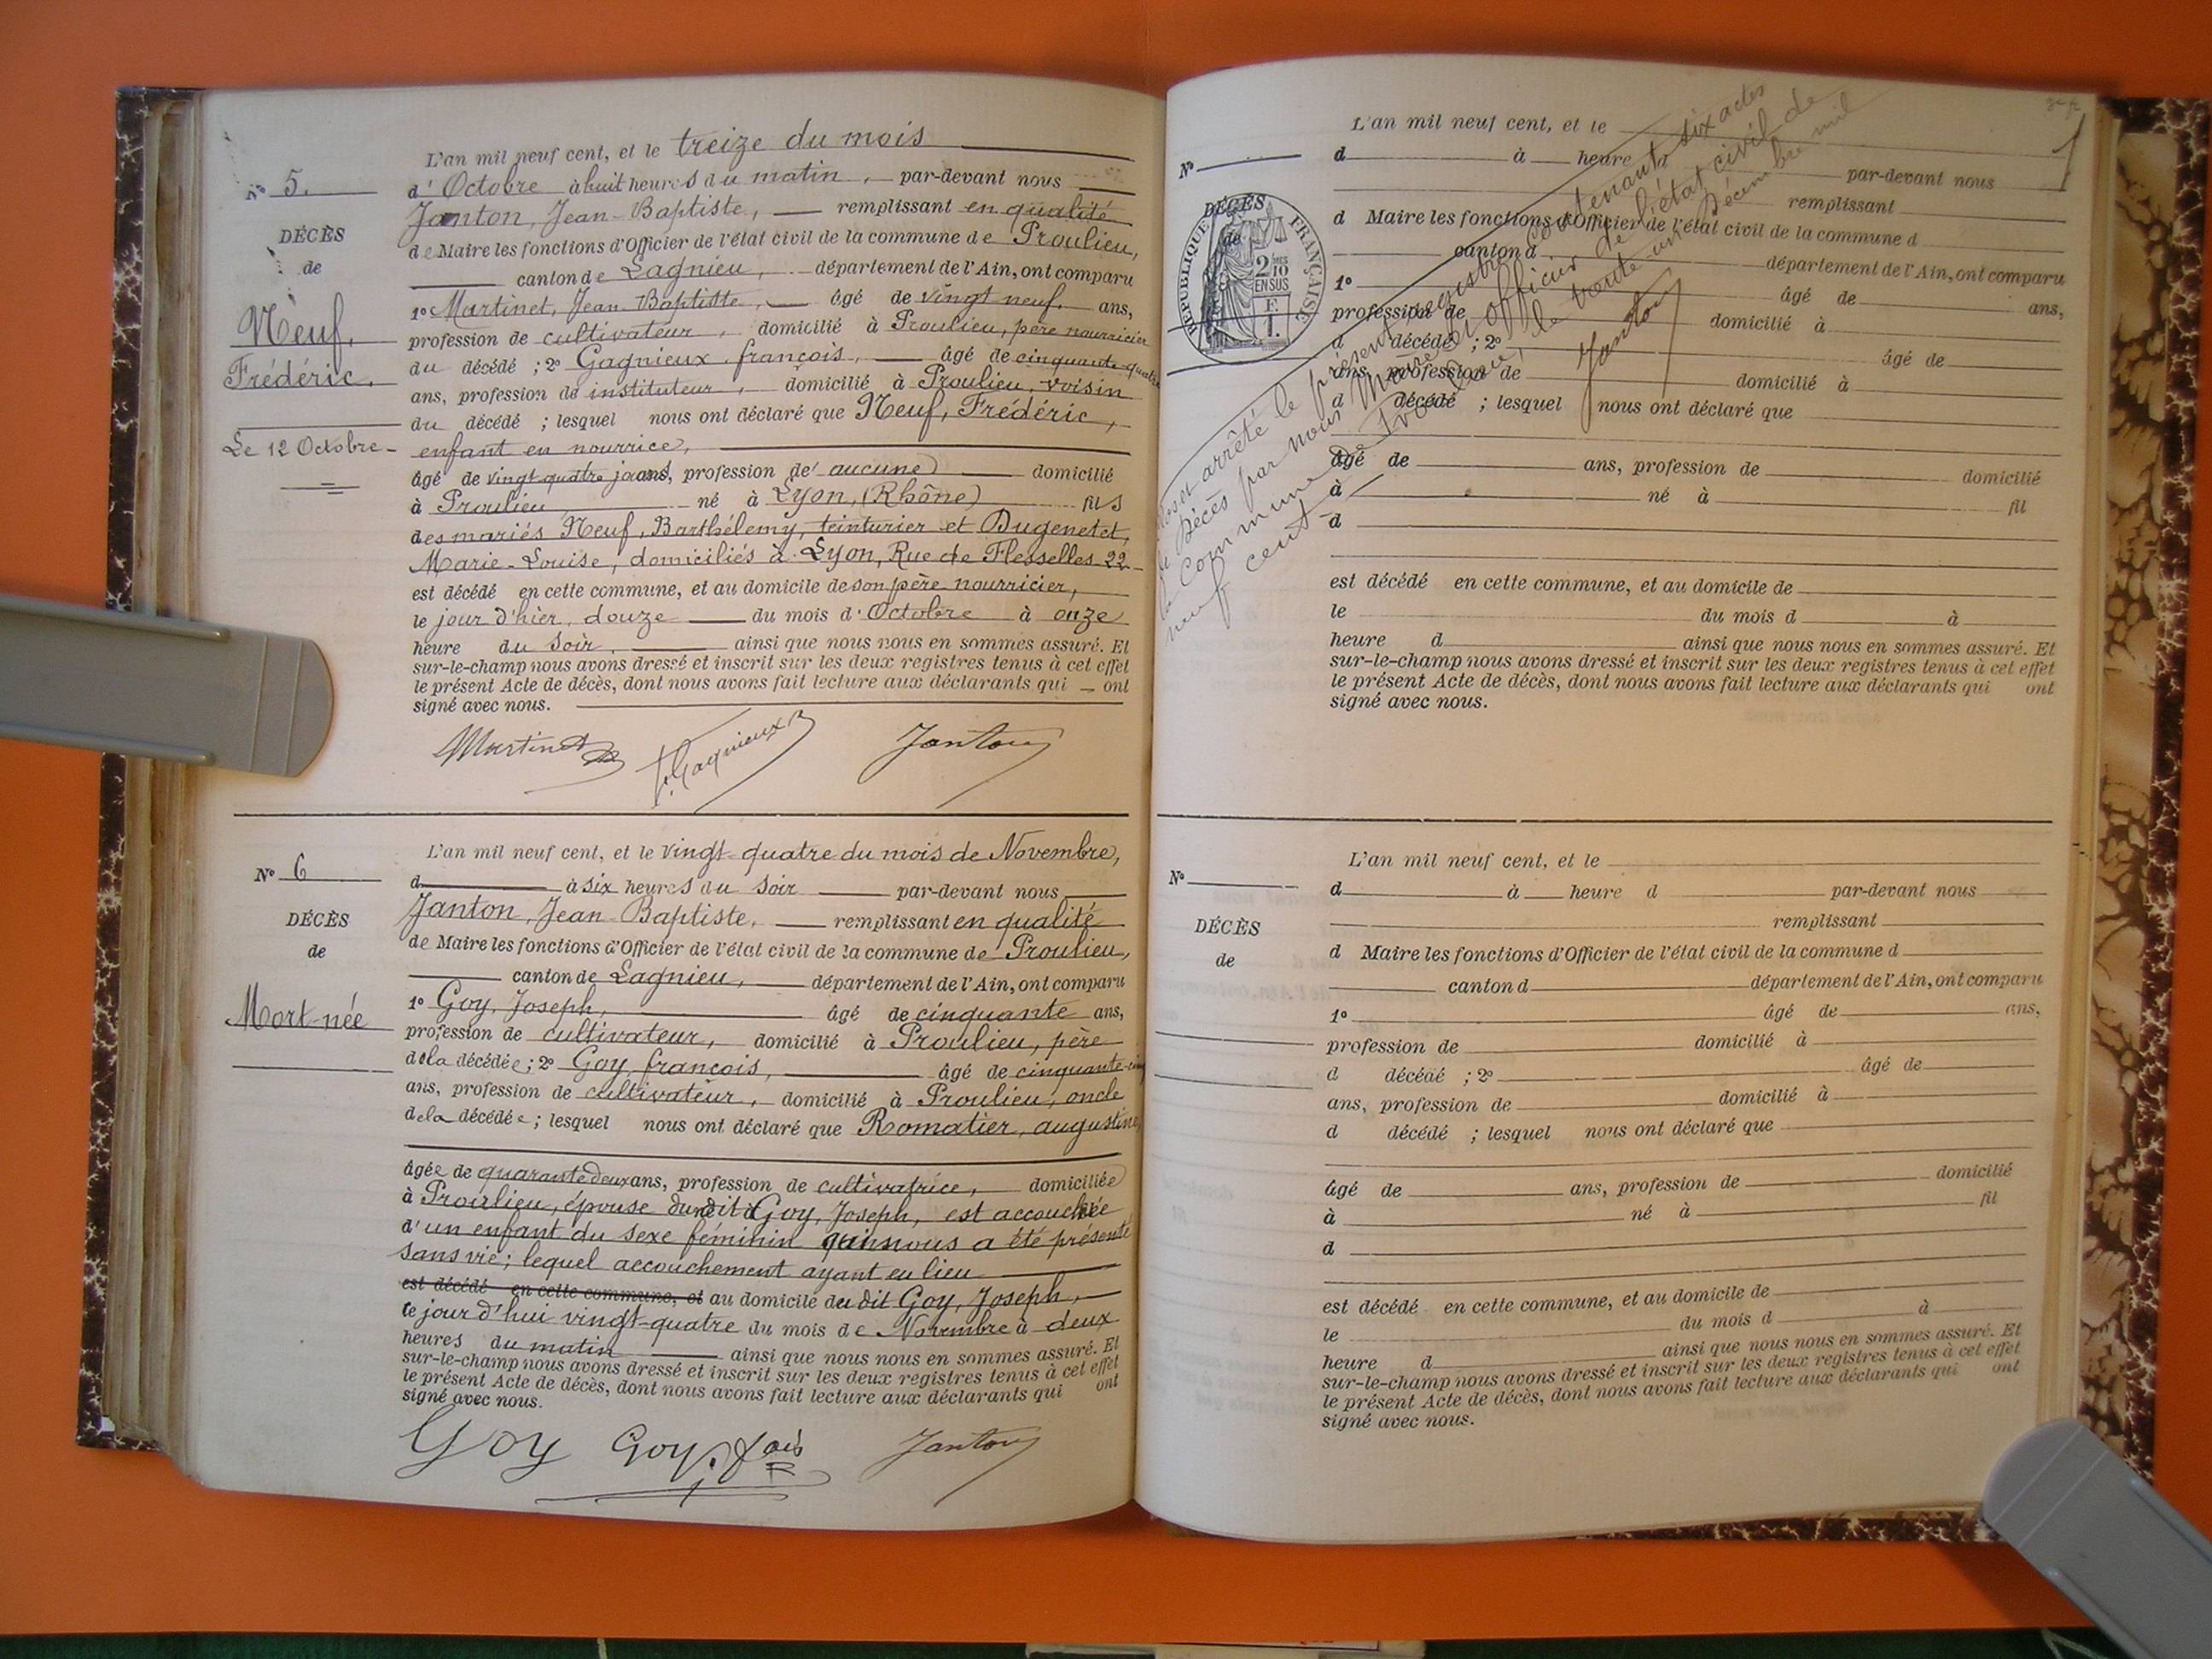 L'an mil neuf cent, et le treize du mois
N° 5.
d'Octobre à huit heures du matin, par-devant nous
Janton, Jean-Baptiste, remplissant en qualité
DÉCÈS
de Maire les fonctions d'Officier de l'état civil de la commune de Proulieu,
de
canton de Lagnieu, département de l'Ain, ont comparu
1° Martinet, Jean-Baptiste, âgé de vingt neuf ans,
Neuf,
profession de cultivateur, domicilié à Proulieu, père nourricier
du décédé ; 2° Gagnieux, françois, âgé de cinquante-quatre
Frédéric.
ans, profession de instituteur, domicilié à Proulieu, voisin
du décédé ; lesquel nous ont déclaré que Neuf, Frédéric,
Le 12 Octobre
enfant en nourrice,
âgé de vingt quatre jours, profession de aucune domicilié
à Proulieu né à Lyon, (Rhône) fils
des mariés Neuf, Barthélemy, teinturier et Dugenetet,
Marie-Louise, domiciliés à Lyon, Rue de Flesselles 22
est décédé en cette commune, et au domicile de son père nourricier,
le jour d'hier, douze du mois d'Octobre à onze
heure du soir, ainsi que nous nous en sommes assuré. Et
sur-le-champ nous avons dressé et inscrit sur les deux registres tenus à cet effet
le présent Acte de décès, dont nous avons fait lecture aux déclarants qui ont
signé avec nous.
Martinet f. Gagnieux Janton
L'an mil neuf cent, et le vingt-quatre du mois de Novembre,
N° 6
d à six heures du soir par-devant nous
Janton, Jean-Baptiste, remplissant en qualité
DÉCÈS
de Maire les fonctions d'Officier de l'état civil de la commune de Proulieu,
de
canton de Lagnieu, département de l'Ain, ont comparu
Mort-née
1° Goy, Joseph, âgé de cinquante ans,
profession de cultivateur, domicilié à Proulieu, père
de la décédée ; 2° Goy, françois, âgé de cinquante-cinq
ans, profession de cultivateur, domicilié à Proulieu, oncle
de la décédée ; lesquel nous ont déclaré que Romatier, augustine,
âgée de quarante deux ans, profession de cultivatrice, domiciliée
à Proulieu, épouse dudit Goy, Joseph, est accouchée
d'un enfant du sexe féminin qui nous a été présenté
sans vie ; lequel accouchement ayant eu lieu
est décédé en cette commune, et au domicile du dit Goy, Joseph,
le jour d'hui vingt-quatre du mois de Novembre à deux
heures du matin ainsi que nous nous en sommes assuré. Et
sur-le-champ nous avons dressé et inscrit sur les deux registres tenus à cet effet
le présent Acte de décès, dont nous avons fait lecture aux déclarants qui ont
signé avec nous.
Goy Goy fois Janton
L'an mil neuf cent, et le
N°
d à heure d par-devant nous
remplissant
DÉCÈS
de
RÉPUBLIQUE FRANÇAISE
2 10 EN SUS
d Maire les fonctions d'Officier de l'état civil de la commune d
canton d département de l'Ain, ont comparu
1° âgé de ans,
profession de domicilié à
d décédé ; 2° âgé de
ans, profession de domicilié à
d décédé ; lesquel nous ont déclaré que
âgé de ans, profession de domicilié
à né à fil
d
est décédé en cette commune, et au domicile de
le du mois d à
heure d ainsi que nous nous en sommes assuré. Et
sur-le-champ nous avons dressé et inscrit sur les deux registres tenus à cet effet
le présent Acte de décès, dont nous avons fait lecture aux déclarants qui ont
signé avec nous.
arrêté le présent registre contenant six actes
de Décès par nous Maire officier de l'état civil de
la Commune de Proulieu, le trente-un Décembre mil
neuf cent
Janton
L'an mil neuf cent, et le
N°
d à heure d par-devant nous
remplissant
DÉCÈS
d Maire les fonctions d'Officier de l'état civil de la commune d
de
canton d département de l'Ain, ont comparu
1° âgé de ans,
profession de domicilié à
d décédé ; 2° âgé de
ans, profession de domicilié à
d décédé ; lesquel nous ont déclaré que
âgé de ans, profession de domicilié
à né à fil
d
est décédé en cette commune, et au domicile de
le du mois d à
heure d ainsi que nous nous en sommes assuré. Et
sur-le-champ nous avons dressé et inscrit sur les deux registres tenus à cet effet
le présent Acte de décès, dont nous avons fait lecture aux déclarants qui ont
signé avec nous.